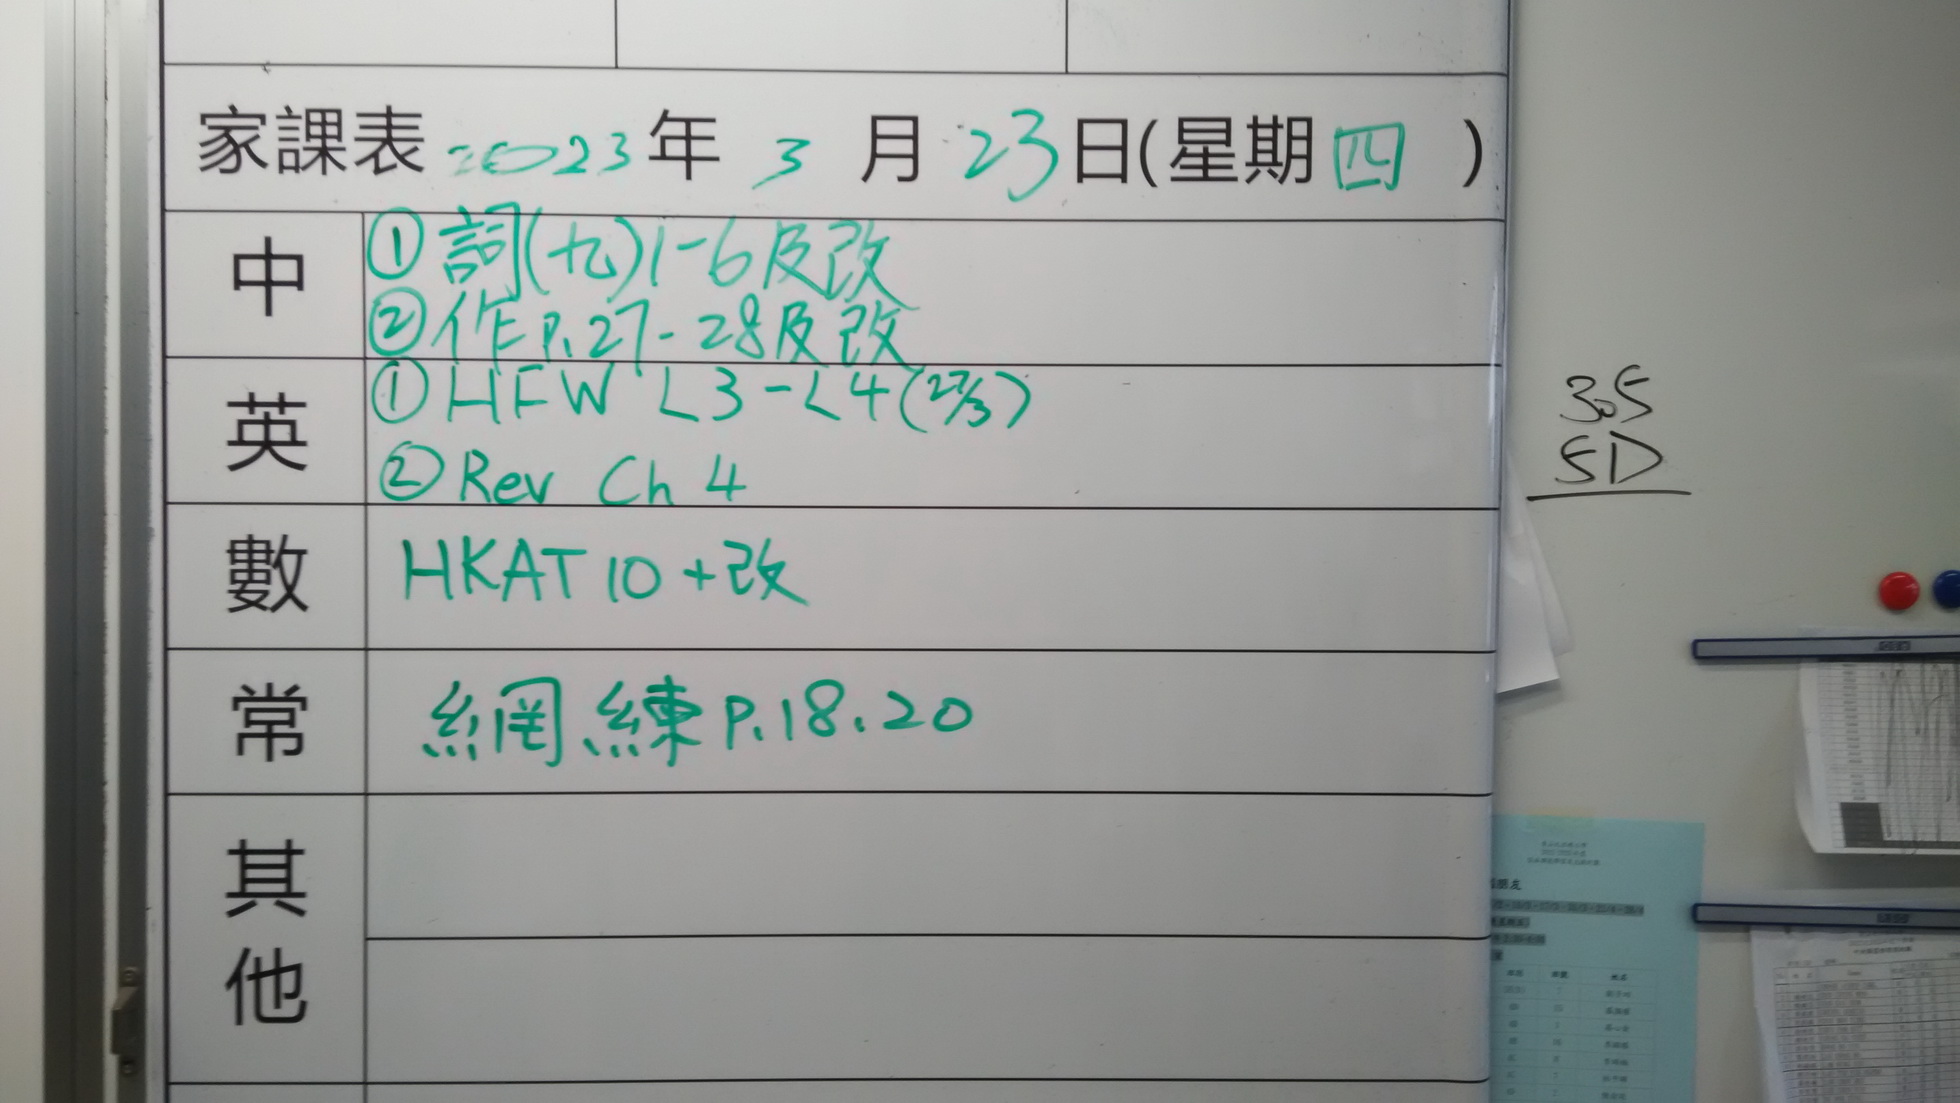 家課表 2023年 3 月 23日(星期四 )
中
①詞(九)1-6及改
②作P.27-28及改
英
①HFW L3-L4(27/3)
②Rev Ch 4
數
HKAT 10+改
常
網練P.18.20
其他
305
5D
朋友